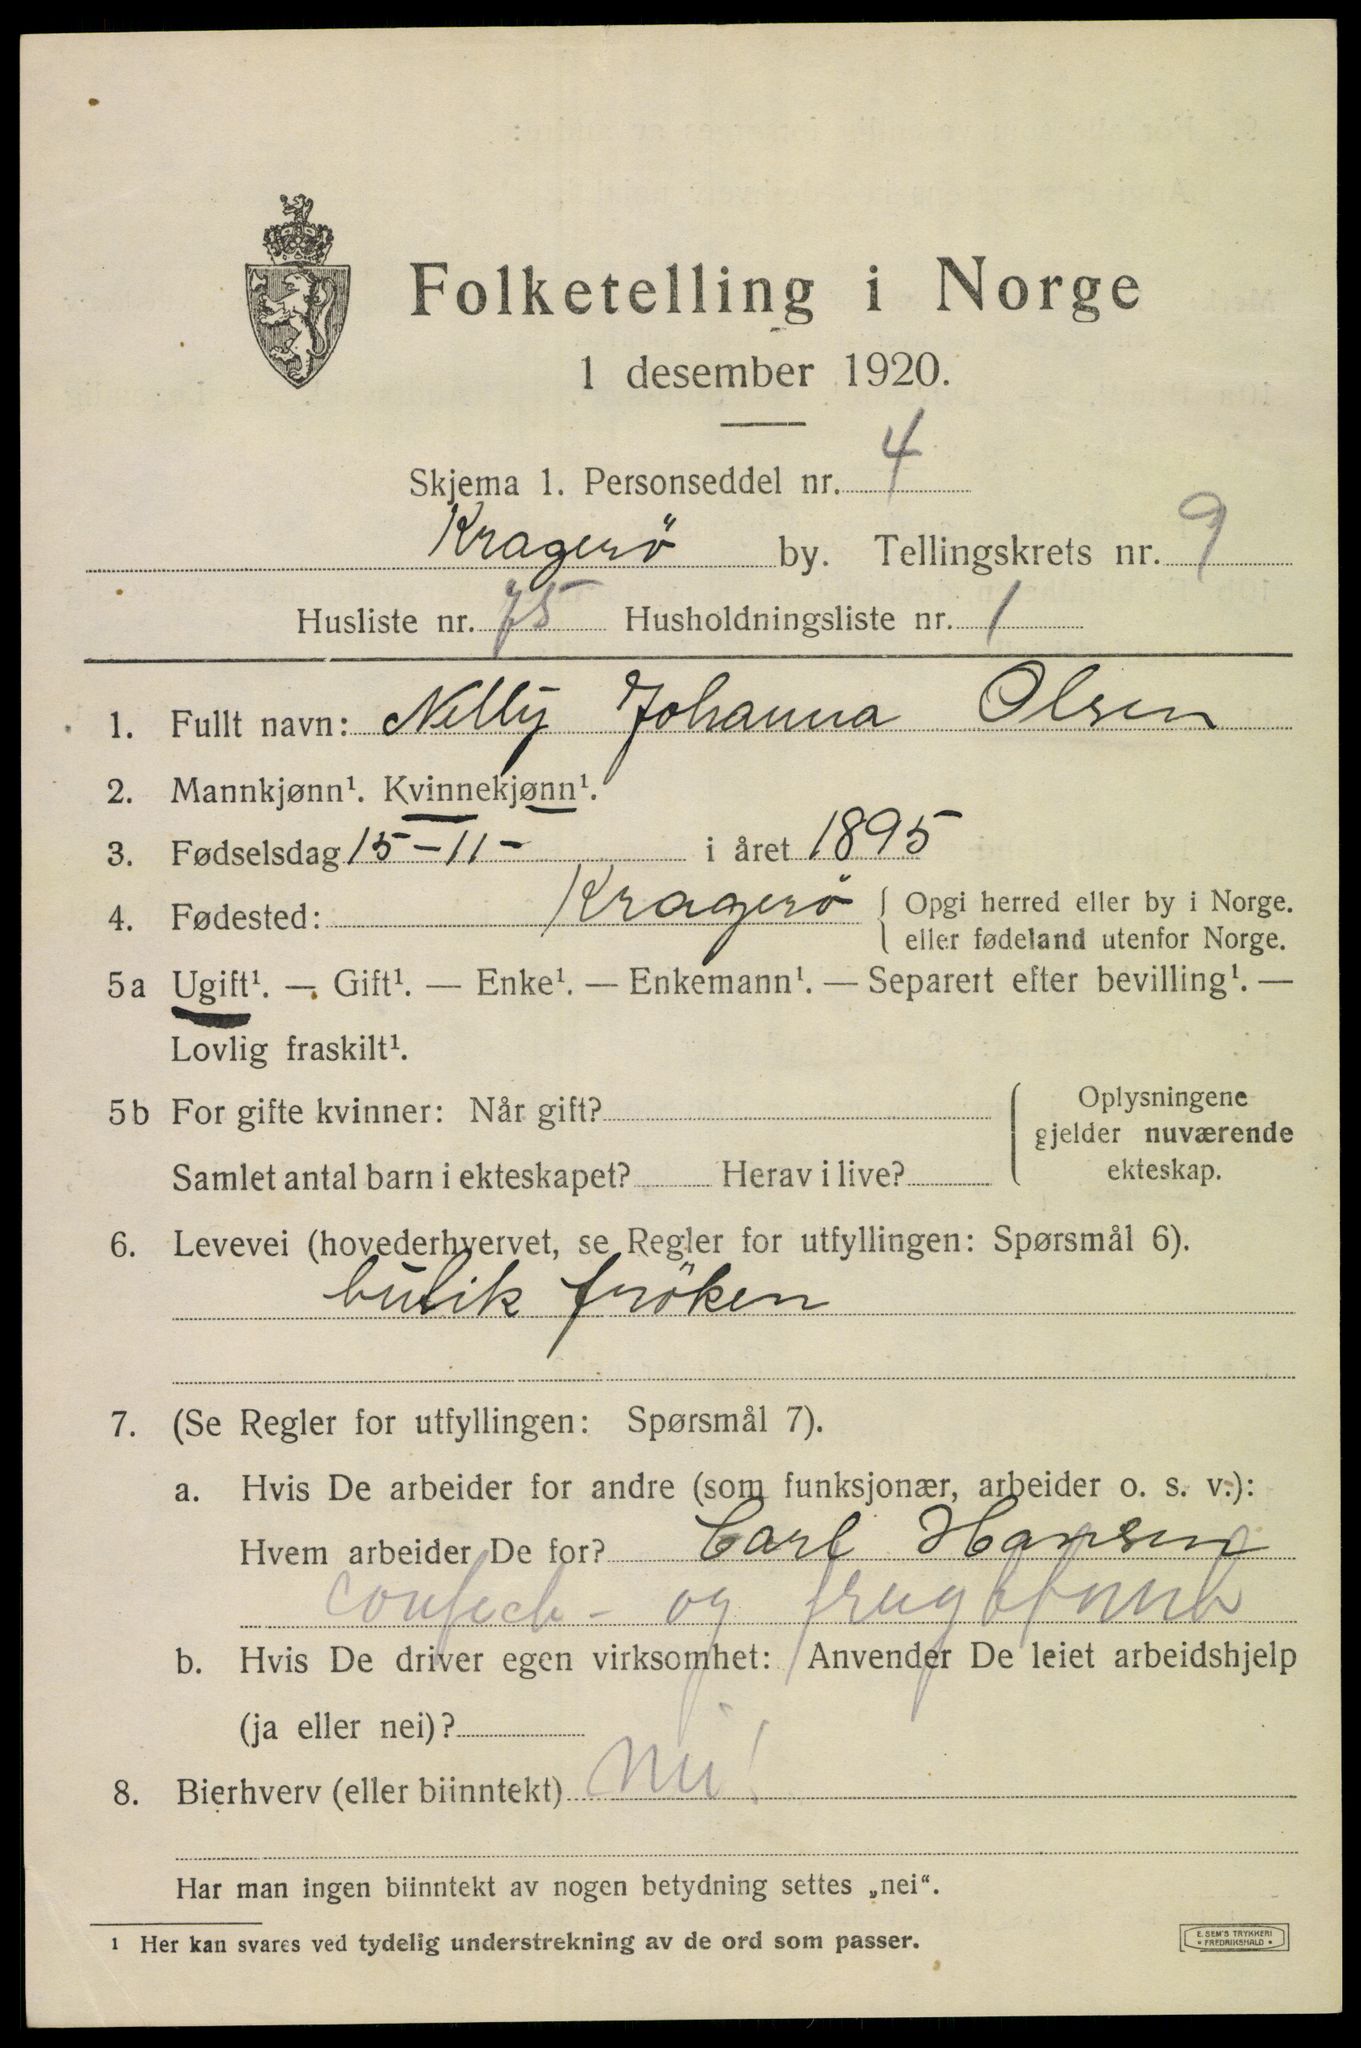 Folketelling i Norge
1 desember 1920.
Skjema 1. Personseddel nr. 4
Kragerö by. Tellingskrets nr. 9
Husliste nr. 75 Husholdningsliste nr. 1
1. Fullt navn: Nelly Johanna Olsen
2. Mannkjønn¹. Kvinnekjønn¹.
3. Fødselsdag 15-11- i året 1895
4. Fødested: Kragerö { Opgi herred eller by i Norge.
eller fødeland utenfor Norge.
5a Ugift¹. — Gift¹. — Enke¹. — Enkemann¹. — Separert efter bevilling¹. —
Lovlig fraskilt¹.
5b For gifte kvinner: Når gift?
Samlet antal barn i ekteskapet? Herav i live?
Oplysningene
gjelder nuværende
ekteskap.
6. Levevei (hovederhvervet, se Regler for utfyllingen: Spørsmål 6).
butik fröken
7. (Se Regler for utfyllingen: Spørsmål 7).
a. Hvis De arbeider for andre (som funksjonær, arbeider o. s. v.):
Hvem arbeider De for? Carl Hansen
confect- og
b. Hvis De driver egen virksomhet: Anvender De leiet arbeidshjelp
(ja eller nei)?
8. Bierhverv (eller biinntekt) Nei!
Har man ingen biinntekt av nogen betydning settes „nei“.
¹ Her kan svares ved tydelig understrekning av de ord som passer.
E. SEM'S TRYKKERI
* FREDRIKSHALD *